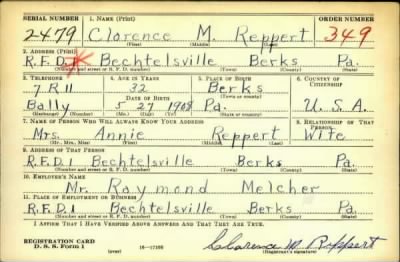 SERIAL NUMBER 1. NAME (Print) ORDER NUMBER
2479 Clarence M. Reppert 349
(First) (Middle) (Last)
2. ADDRESS (Print)
R.F.D.1 Bechtelsville Berks Pa.
(Number and street or R. F. D. number) (Town) (County) (State)
3. TELEPHONE 4. AGE IN YEARS 5. PLACE OF BIRTH 6. COUNTRY OF CITIZENSHIP
7 R 11 32 Berks
DATE OF BIRTH (Town or county)
Bally 5 27 1908 Pa. U.S.A.
(Exchange) (Number) (Mo.) (Day) (Yr.) (State or country)
7. NAME OF PERSON WHO WILL ALWAYS KNOW YOUR ADDRESS 8. RELATIONSHIP OF THAT PERSON
Mrs. Annie Reppert Wife
(Mr., Mrs., Miss) (First) (Middle) (Last)
9. ADDRESS OF THAT PERSON
R.F.D.1 Bechtelsville Berks Pa.
(Number and street or R. F. D. number) (Town) (County) (State)
10. EMPLOYER'S NAME
Mr. Raymond Melcher
11. PLACE OF EMPLOYMENT OR BUSINESS
R.F.D.1 Bechtelsville Berks Pa.
(Number and street or R. F. D. number) (Town) (County) (State)
I AFFIRM THAT I HAVE VERIFIED ABOVE ANSWERS AND THAT THEY ARE TRUE.
REGISTRATION CARD
D. S. S. Form 1 (over) 16—17105 Clarence M. Reppert
(Registrant's signature)